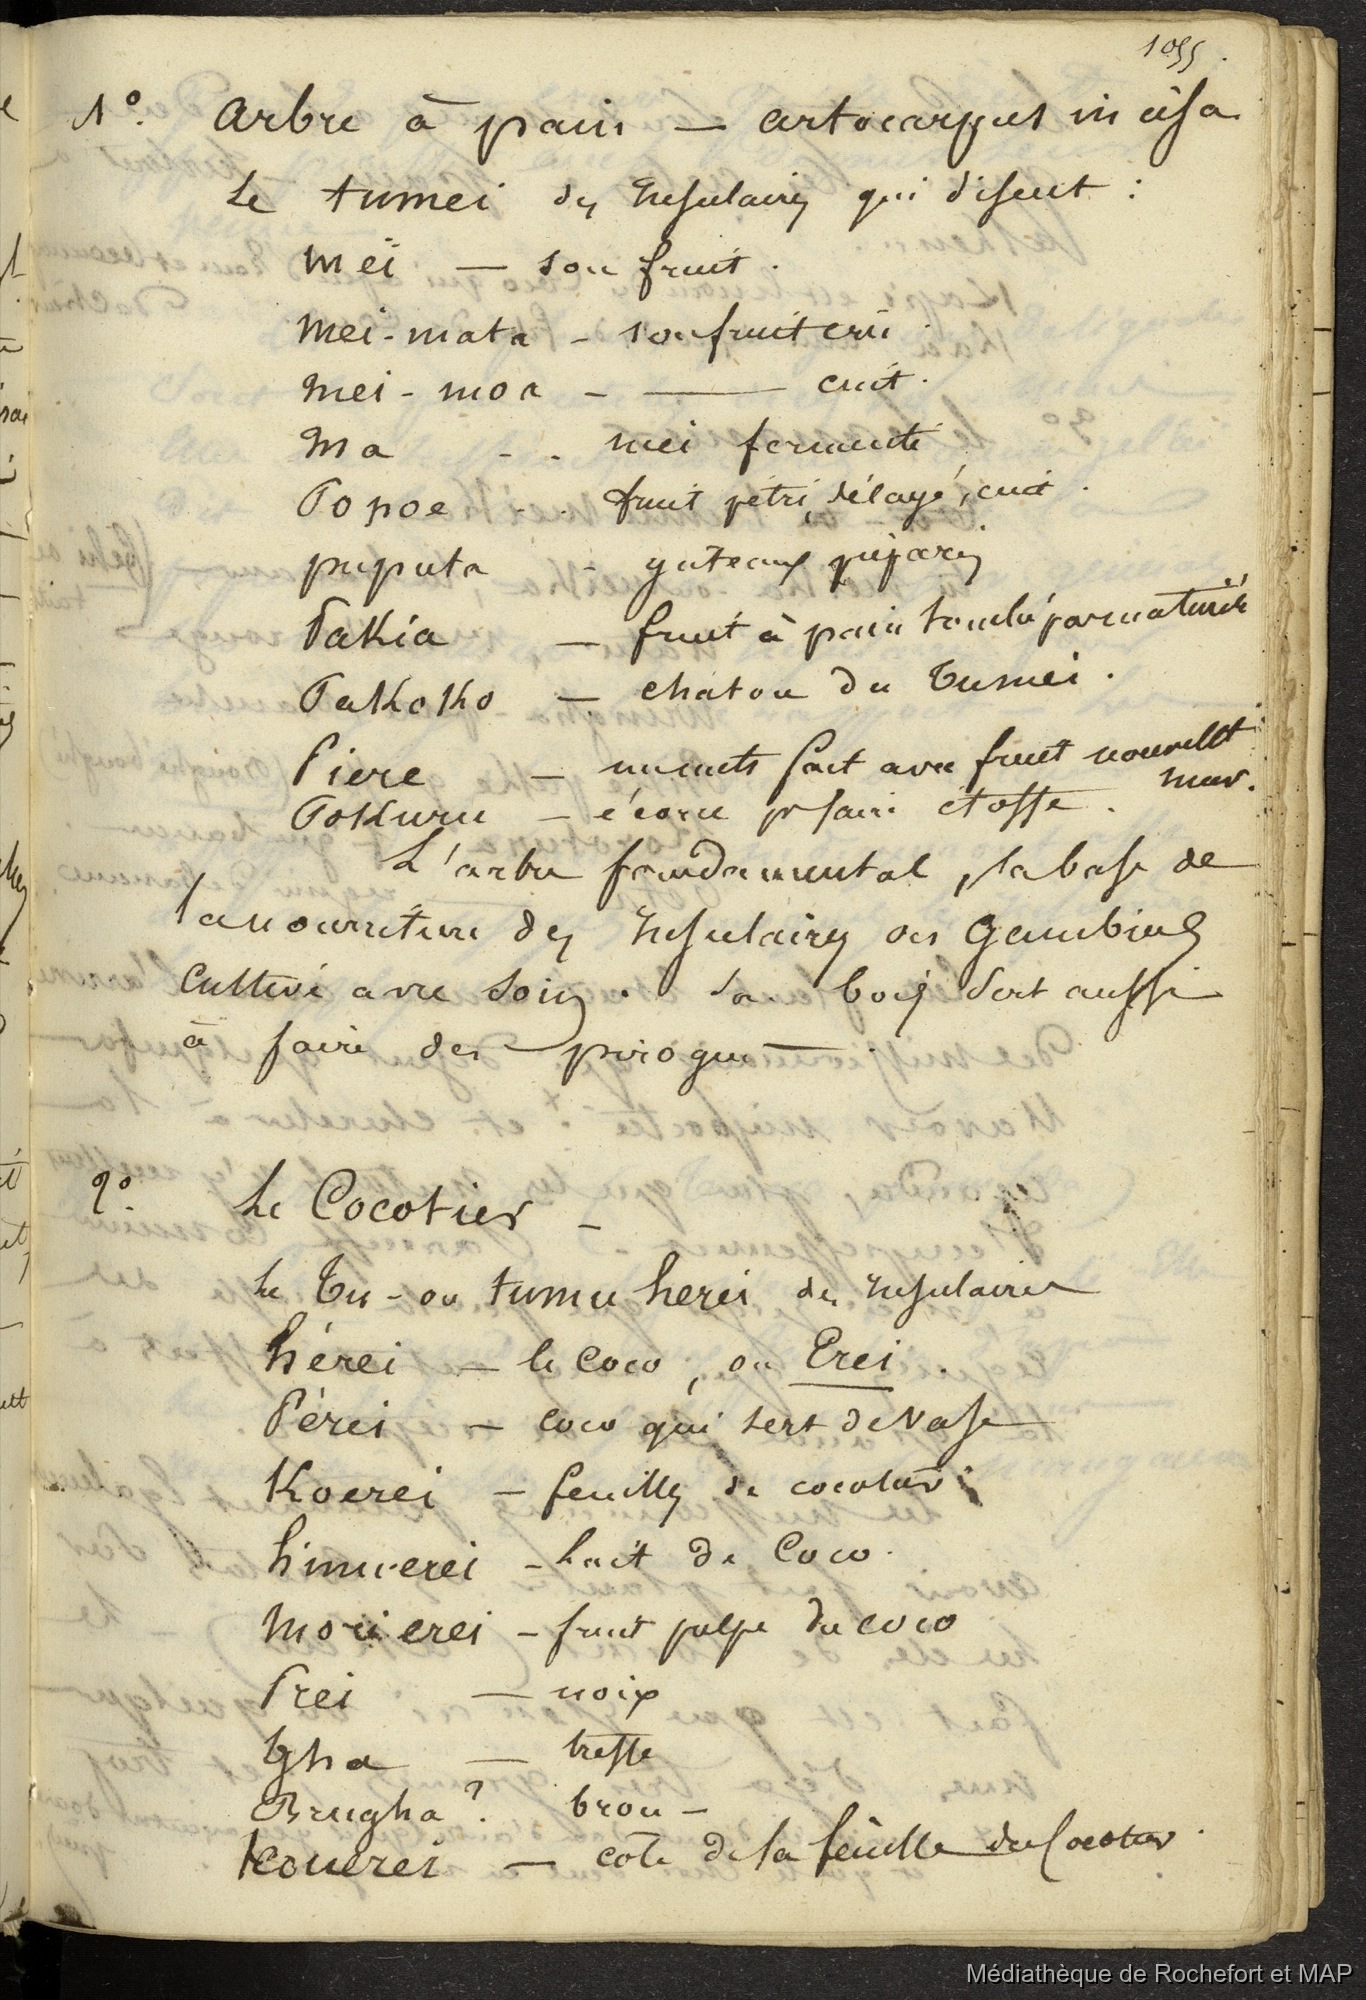 1055.
1º. arbre à pain — artocarpus incisa
Le tumei des Insulaires qui disent :
meï — son fruit.
mei-mata - son fruit cru.
mei-moa - —— cuit.
Ma - . mei fermenté
Popoe - . fruit pétri, délayé, cuit.
puputa - gateaux préparés
Pakia — fruit à pain tombé par maturité
Pakoko — chaton du Tumei.
Piere — fait avec fruit
mur.
Pokuru — écorce pr faire étoffe.
L'arbre fondamental, la base de
la nourriture des Insulaires des Gambiers
Cultivé avec soin. Son bois sert aussi
à faire des pirogues.
2º. Le Cocotier -
Le Tu - ou tumu herei des Insulaires
hérei — le Coco, ou Erei.
Pérei — coco qui sert de vase
Koerei — feuilles de cocotier
himu-erei - lait de Coco.
Mori erei - fruit pulpe du coco
Prei — noix
Igha — tresse
Brugha ? brou —
Kouerei — côte de la feuille du Cocotier.
Médiathèque de Rochefort et MAP